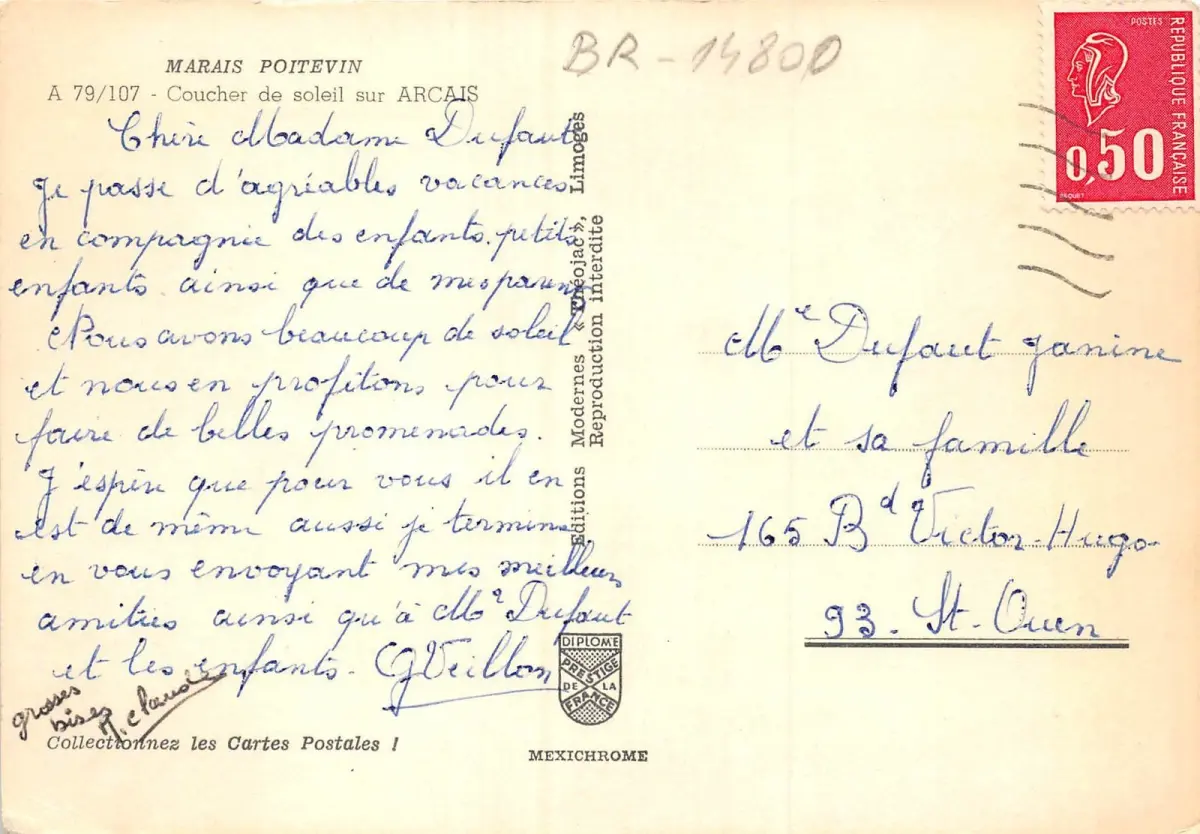 MARAIS POITEVIN
A 79/107 - Coucher de soleil sur ARCAIS
Chère Madame Dufaut
Je passe d'agréables vacances
en compagnie des enfants. petits
enfants ainsi que de mes parents
Nous avons beaucoup de soleil
et nous en profitons pour
faire de belles promenades.
J'espère que pour vous il en
est de même aussi je termine
en vous envoyant mes meilleurs
amitiés ainsi qu'à Mr Dufaut
et les enfants. GVeillon
grosses
bises
M. Claude
Collectionnez les Cartes Postales !
Editions Modernes « Théojac », Limoges
Reproduction interdite
DIPLOME
PRESTIGE
DE LA
FRANCE
MEXICHROME
BR-14800
POSTES
REPUBLIQUE FRANÇAISE
0,50
BEQUET
Me Dufaut Janine
et sa famille
165 Bd Victor-Hugo
93. St-Ouen